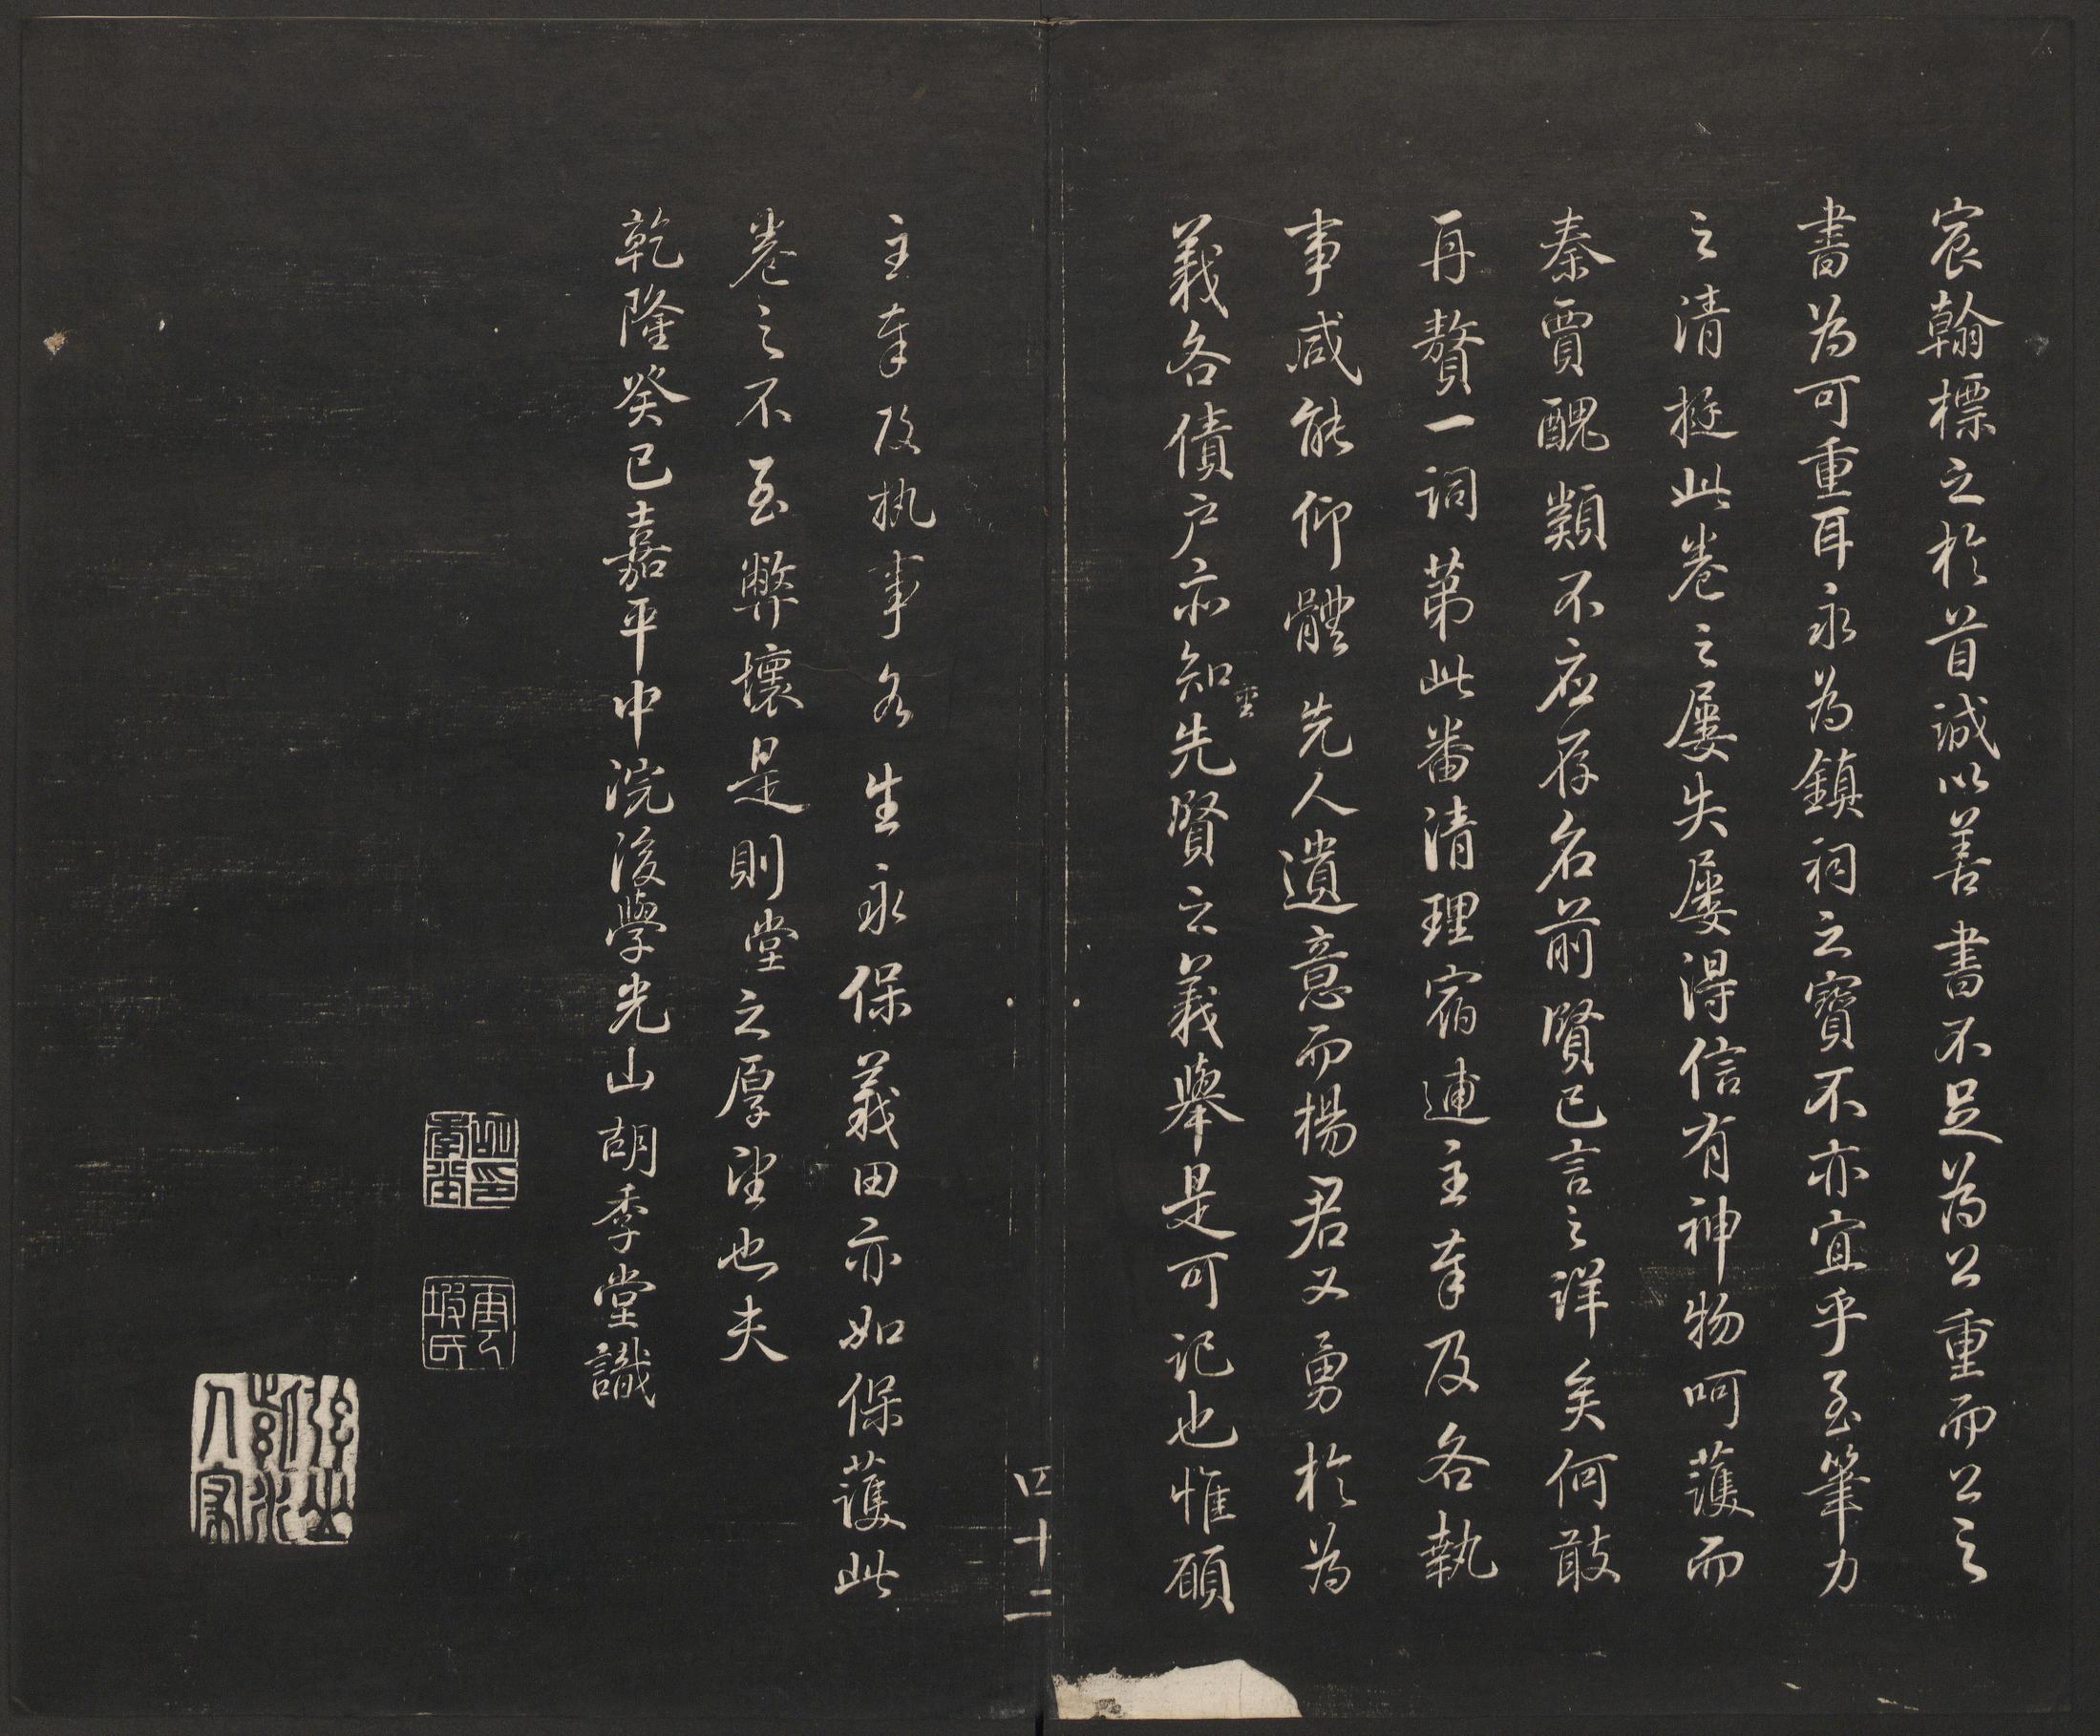 宸翰標之於首誠以善書不足為公重而公之
書為可重耳永為鎮祠之寶不亦宜乎至筆力
之清挺此卷之屢失屢得信有神物呵護而
秦賈醜類不應存名前賢已言之詳矣何敢
再贅一詞第此番清理宿逋主奉及各執
事咸能仰體先人遺意而楊君又勇於為
義各債戶亦知
重
先賢之義舉是可記也惟願
四十二
主奉及执事各生永保義田亦如保護此
卷之不至弊壞是則堂之厚望也夫
乾隆癸巳嘉平中浣後學光山胡季堂識
雲坡氏